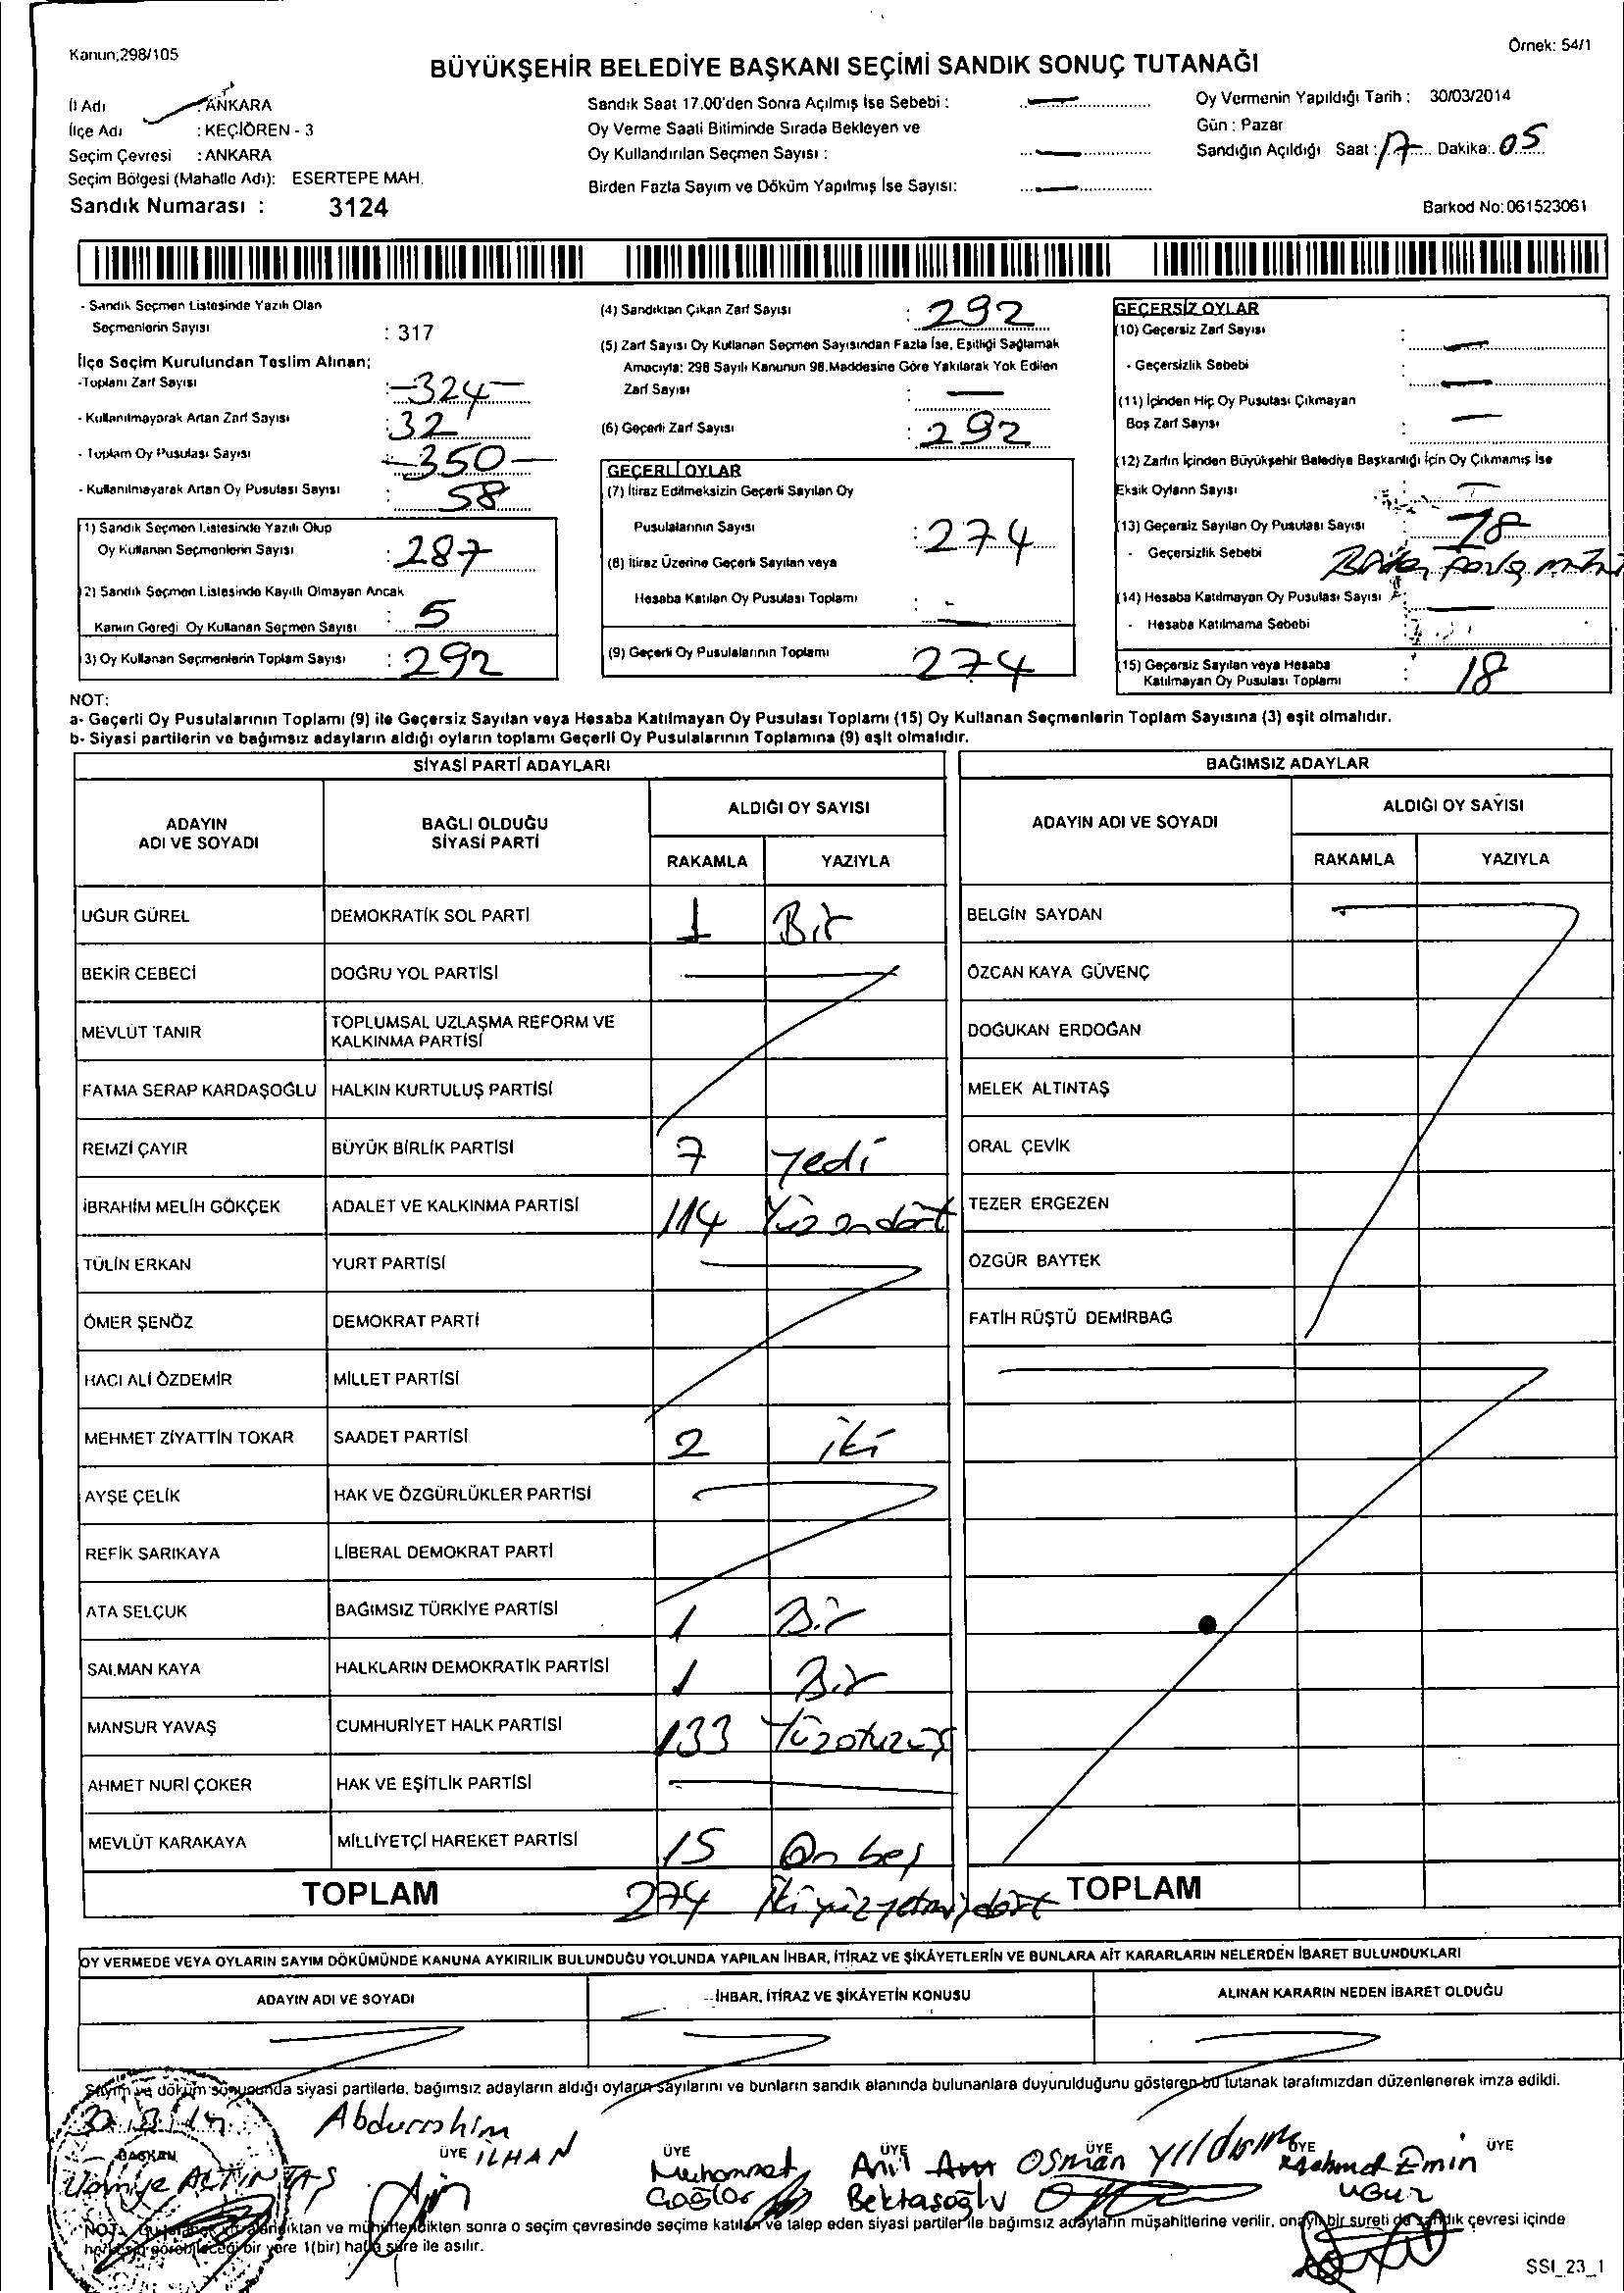 Kanun;298/105
Örnek: 54/1
BÜYÜKŞEHİR BELEDİYE BAŞKANI SEÇİMİ SANDIK SONUÇ TUTANAĞI
İl Adı : ANKARA
İlçe Adı : KEÇİÖREN - 3
Seçim Çevresi : ANKARA
Seçim Bölgesi (Mahalle Adı): ESERTEPE MAH.
Sandık Numarası : 3124
Sandık Saat 17.00'den Sonra Açılmış İse Sebebi :
Oy Verme Saati Bitiminde Sırada Bekleyen ve
Oy Kullandırılan Seçmen Sayısı :
Birden Fazla Sayım ve Döküm Yapılmış İse Sayısı:
Oy Vermenin Yapıldığı Tarih : 30/03/2014
Gün : Pazar
Sandığın Açıldığı Saat : 17 Dakika: 05
Barkod No: 061523061
- Sandık Seçmen Listesinde Yazılı Olan
Seçmenlerin Sayısı : 317
İlçe Seçim Kurulundan Teslim Alınan;
-Toplam Zarf Sayısı : -324-
- Kullanılmayarak Artan Zarf Sayısı : 32
- Toplam Oy Pusulası Sayısı -350-
- Kullanılmayarak Artan Oy Pusulası Sayısı : 58
1) Sandık Seçmen Listesinde Yazılı Olup
Oy Kullanan Seçmenlerin Sayısı : 287
2) Sandık Seçmen Listesinde Kayıtlı Olmayan Ancak
Kanun Gereği Oy Kullanan Seçmen Sayısı : 5
3) Oy Kullanan Seçmenlerin Toplam Sayısı : 292
(4) Sandıktan Çıkan Zarf Sayısı : 292
(5) Zarf Sayısı Oy Kullanan Seçmen Sayısından Fazla İse, Eşitliği Sağlamak
Amacıyla; 298 Sayılı Kanunun 98.Maddesine Göre Yakılarak Yok Edilen
Zarf Sayısı :
(6) Geçerli Zarf Sayısı : 292
GEÇERLİ OYLAR
(7) İtiraz Edilmeksizin Geçerli Sayılan Oy
Pusulalarının Sayısı : 274
(8) İtiraz Üzerine Geçerli Sayılan veya
Hesaba Katılan Oy Pusulası Toplamı : -
(9) Geçerli Oy Pusulalarının Toplamı 274
GEÇERSİZ OYLAR
(10) Geçersiz Zarf Sayısı :
- Geçersizlik Sebebi :
(11) İçinden Hiç Oy Pusulası Çıkmayan
Boş Zarf Sayısı :
(12) Zarfın İçinden Büyükşehir Belediye Başkanlığı İçin Oy Çıkmamış İse
Eksik Oyların Sayısı
(13) Geçersiz Sayılan Oy Pusulası Sayısı : 18
- Geçersizlik Sebebi
(14) Hesaba Katılmayan Oy Pusulası Sayısı
- Hesaba Katılmama Sebebi
(15) Geçersiz Sayılan veya Hesaba
Katılmayan Oy Pusulası Toplamı : 18
NOT:
a- Geçerli Oy Pusulalarının Toplamı (9) ile Geçersiz Sayılan veya Hesaba Katılmayan Oy Pusulası Toplamı (15) Oy Kullanan Seçmenlerin Toplam Sayısına (3) eşit olmalıdır.
b- Siyasi partilerin ve bağımsız adayların aldığı oyların toplamı Geçerli Oy Pusulalarının Toplamına (9) eşit olmalıdır.
SİYASİ PARTİ ADAYLARI
ADAYIN ADI VE SOYADI
BAĞLI OLDUĞU SİYASİ PARTİ
ALDIĞI OY SAYISI
RAKAMLA YAZIYLA
UĞUR GÜREL DEMOKRATİK SOL PARTİ 1 Bir
BEKİR CEBECİ DOĞRU YOL PARTİSİ
MEVLÜT TANIR TOPLUMSAL UZLAŞMA REFORM VE
KALKINMA PARTİSİ
FATMA SERAP KARDAŞOĞLU HALKIN KURTULUŞ PARTİSİ
REMZİ ÇAYIR BÜYÜK BİRLİK PARTİSİ 7 Yedi
İBRAHİM MELİH GÖKÇEK ADALET VE KALKINMA PARTİSİ 114 Yüz on dört
TÜLİN ERKAN YURT PARTİSİ
ÖMER ŞENÖZ DEMOKRAT PARTİ
HACI ALİ ÖZDEMİR MİLLET PARTİSİ
MEHMET ZİYATTİN TOKAR SAADET PARTİSİ 2 iki
AYŞE ÇELİK HAK VE ÖZGÜRLÜKLER PARTİSİ
REFİK SARIKAYA LİBERAL DEMOKRAT PARTİ
ATA SELÇUK BAĞIMSIZ TÜRKİYE PARTİSİ 1 Bir
SALMAN KAYA HALKLARIN DEMOKRATİK PARTİSİ 1 Bir
MANSUR YAVAŞ CUMHURİYET HALK PARTİSİ 133 Yüzotuzüç
AHMET NURİ ÇOKER HAK VE EŞİTLİK PARTİSİ
MEVLÜT KARAKAYA MİLLİYETÇİ HAREKET PARTİSİ 15 On beş
TOPLAM 274 İki yüz yetmiş dört
BAĞIMSIZ ADAYLAR
ADAYIN ADI VE SOYADI
ALDIĞI OY SAYISI
RAKAMLA YAZIYLA
BELGİN SAYDAN
ÖZCAN KAYA GÜVENÇ
DOĞUKAN ERDOĞAN
MELEK ALTINTAŞ
ORAL ÇEVİK
TEZER ERGEZEN
ÖZGÜR BAYTEK
FATİH RÜŞTÜ DEMİRBAĞ
TOPLAM
OY VERMEDE VEYA OYLARIN SAYIM DÖKÜMÜNDE KANUNA AYKIRILIK BULUNDUĞU YOLUNDA YAPILAN İHBAR, İTİRAZ VE ŞİKÂYETLERİN VE BUNLARA AİT KARARLARIN NELERDEN İBARET BULUNDUKLARI
ADAYIN ADI VE SOYADI
İHBAR, İTİRAZ VE ŞİKÂYETİN KONUSU
ALINAN KARARIN NEDEN İBARET OLDUĞU
Sayım ve döküm sonucunda siyasi partilerle, bağımsız adayların aldığı oyların sayılarını ve bunların sandık alanında bulunanlara duyurulduğunu gösteren bu tutanak tarafımızdan düzenlenerek imza edildi.
BAŞKAN ÜYE ÜYE ÜYE ÜYE ÜYE ÜYE
ALTINTAŞ
Abdurrahim İLHAN
Muhammet Çağlar
Anıl Bektaşoğlu
Osman Yıldırım
Mehmet Emin UĞUR
ve mühürlendikten sonra o seçim çevresinde seçime katılan ve talep eden siyasi partiler ile bağımsız adayların müşahitlerine verilir, onaylı bir sureti de sandık çevresi içinde
bir yere 1(bir) hafta süre ile asılır.
SSI_23_1